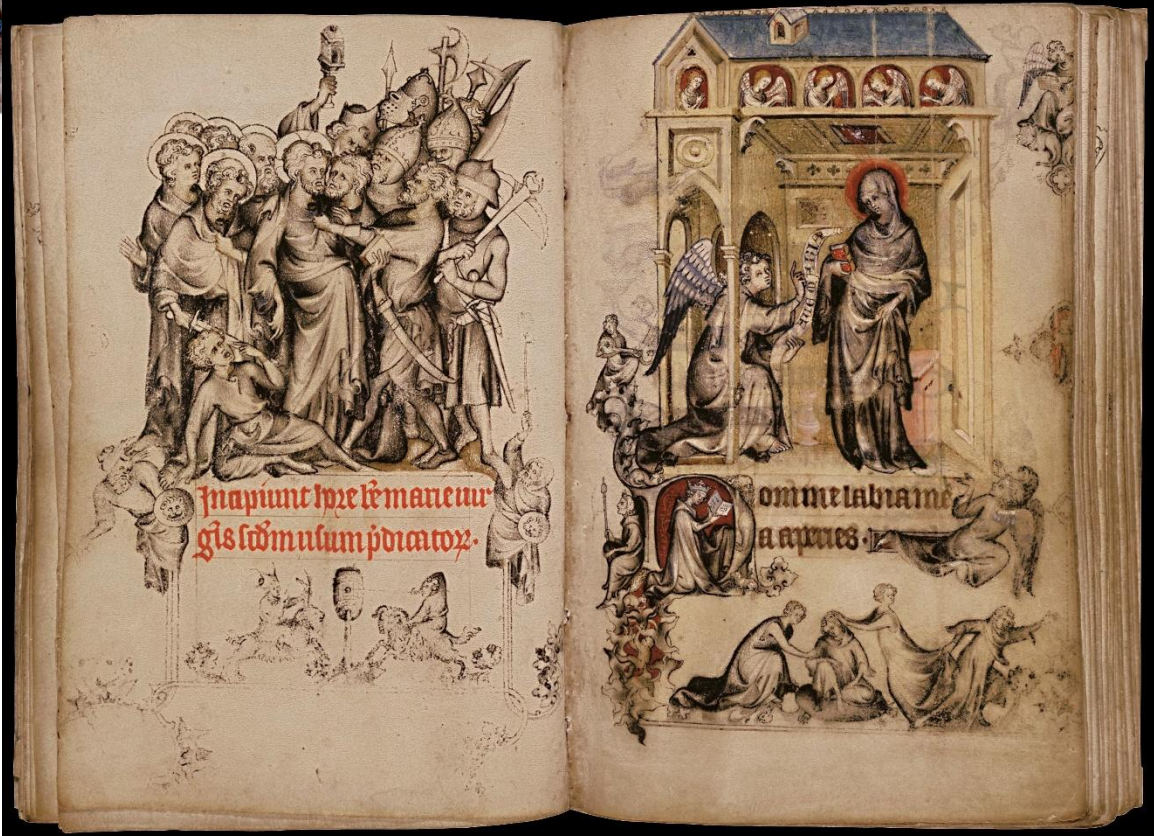 Incipiunt hore bẽ marie uir
gĩs scdm usum p̃dicatorꝝ.
Domine labia me
a aperies.